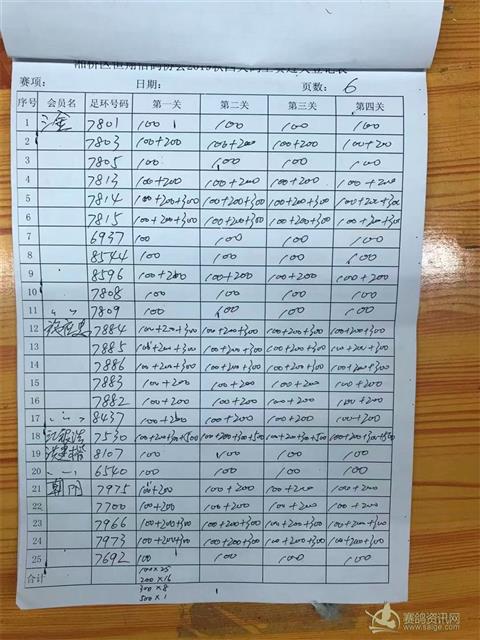 赛项: 日期: 页数: 6
序号 会员名 足环号码 第一关 第二关 第三关 第四关
1 三金 7801 100 100 100 100
2 7803 100+200 100+200 100+200 100+200
3 7805 100 100 100 100
4 7813 100+200 100+200 100+200 100+200
5 7814 100+200+300 100+200+300 100+200+300 100+200+300
6 7815 100+200+300 100+200+300 100+200+300 100+200+300
7 6937 100 100 100 100
8 8544 100 100 100 100
9 8596 100+200 100+200 100+200 100+200
10 7808 100 100 100 100
11 〃 7809 100 100 100 100
12 7884 100+200+300 100+200+300 100+200+300 100+200+300
13 7885 100+200+300 100+200+300 100+200+300 100+200+300
14 7886 100+200+300 100+200+300 100+200+300 100+200+300
15 7883 100+200 100+200 100+200 100+200
16 7882 100+200 100+200 100+200 100+200
17 〃 8437 100+200 100+200 100+200 100+300
18 7530 100+200+300+500 100+200+300+500 100+200+300+500 100+200+300+500
19 8107 100 100 100 100
20 〃 6540 100 100 100 100
21 朝阳 7975 100+200 100+200 100+200 100+200
22 7700 100+200 100+200 100+200 100+200
23 7966 100+200+300 100+200+300 100+200+300 100+200+300
24 7973 100+200+300 100+200+300 100+200+300 100+200+300
25 7692 100 100 100 100
合计 100×25
200×16
300×8
500×1
赛鸽资讯网
www.saige.com